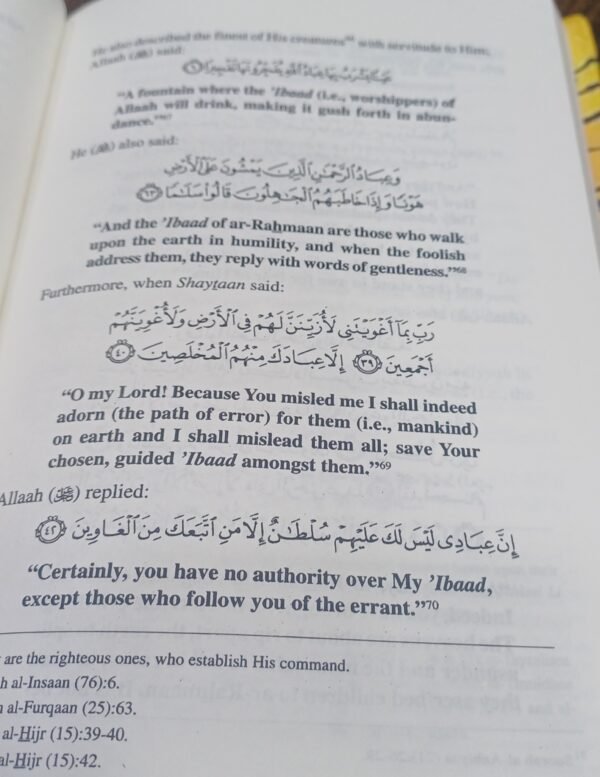 He also described the finest of His creatures⁶⁶ with servitude to Him.
Allaah (ﷻ) said:
عَيْنًا يَشْرَبُ بِهَا عِبَادُ ٱللَّهِ يُفَجِّرُونَهَا تَفْجِيرًا ٦
“A fountain where the ’Ibaad (i.e., worshippers) of
Allaah will drink, making it gush forth in abun-
dance.”⁶⁷
He (ﷻ) also said:
وَعِبَادُ ٱلرَّحْمَٰنِ ٱلَّذِينَ يَمْشُونَ عَلَى ٱلْأَرْضِ
هَوْنًا وَإِذَا خَاطَبَهُمُ ٱلْجَٰهِلُونَ قَالُوا۟ سَلَٰمًا ٦٣
“And the ’Ibaad of ar-Rahmaan are those who walk
upon the earth in humility, and when the foolish
address them, they reply with words of gentleness.”⁶⁸
Furthermore, when Shaytaan said:
رَبِّ بِمَآ أَغْوَيْتَنِى لَأُزَيِّنَنَّ لَهُمْ فِى ٱلْأَرْضِ وَلَأُغْوِيَنَّهُمْ
أَجْمَعِينَ ٣٩ إِلَّا عِبَادَكَ مِنْهُمُ ٱلْمُخْلَصِينَ ٤٠
“O my Lord! Because You misled me I shall indeed
adorn (the path of error) for them (i.e., mankind)
on earth and I shall mislead them all; save Your
chosen, guided ’Ibaad amongst them.”⁶⁹
Allaah (ﷻ) replied:
إِنَّ عِبَادِى لَيْسَ لَكَ عَلَيْهِمْ سُلْطَٰنٌ إِلَّا مَنِ ٱتَّبَعَكَ مِنَ ٱلْغَاوِينَ ٤٢
“Certainly, you have no authority over My ’Ibaad,
except those who follow you of the errant.”⁷⁰
are the righteous ones, who establish His command.
h al-Insaan (76):6.
al-Furqaan (25):63.
al-Hijr (15):39-40.
al-Hijr (15):42.